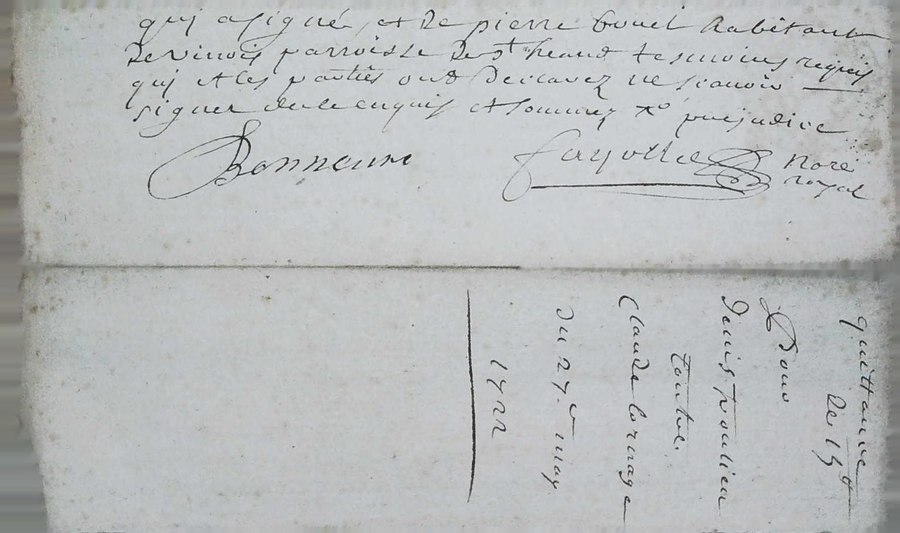 qui a signé, et de pierre bouel habitant
de vinois parroisse de st heand tesmoins requis
qui et les parties ont declarez ne scavoir
signer de ce enquis et sommez pre judice
Bonneure
fayolle Nore
royal
quittance
de 15tt
Pour
Denis poulieu
Contre
Claude
du 27e may
1722